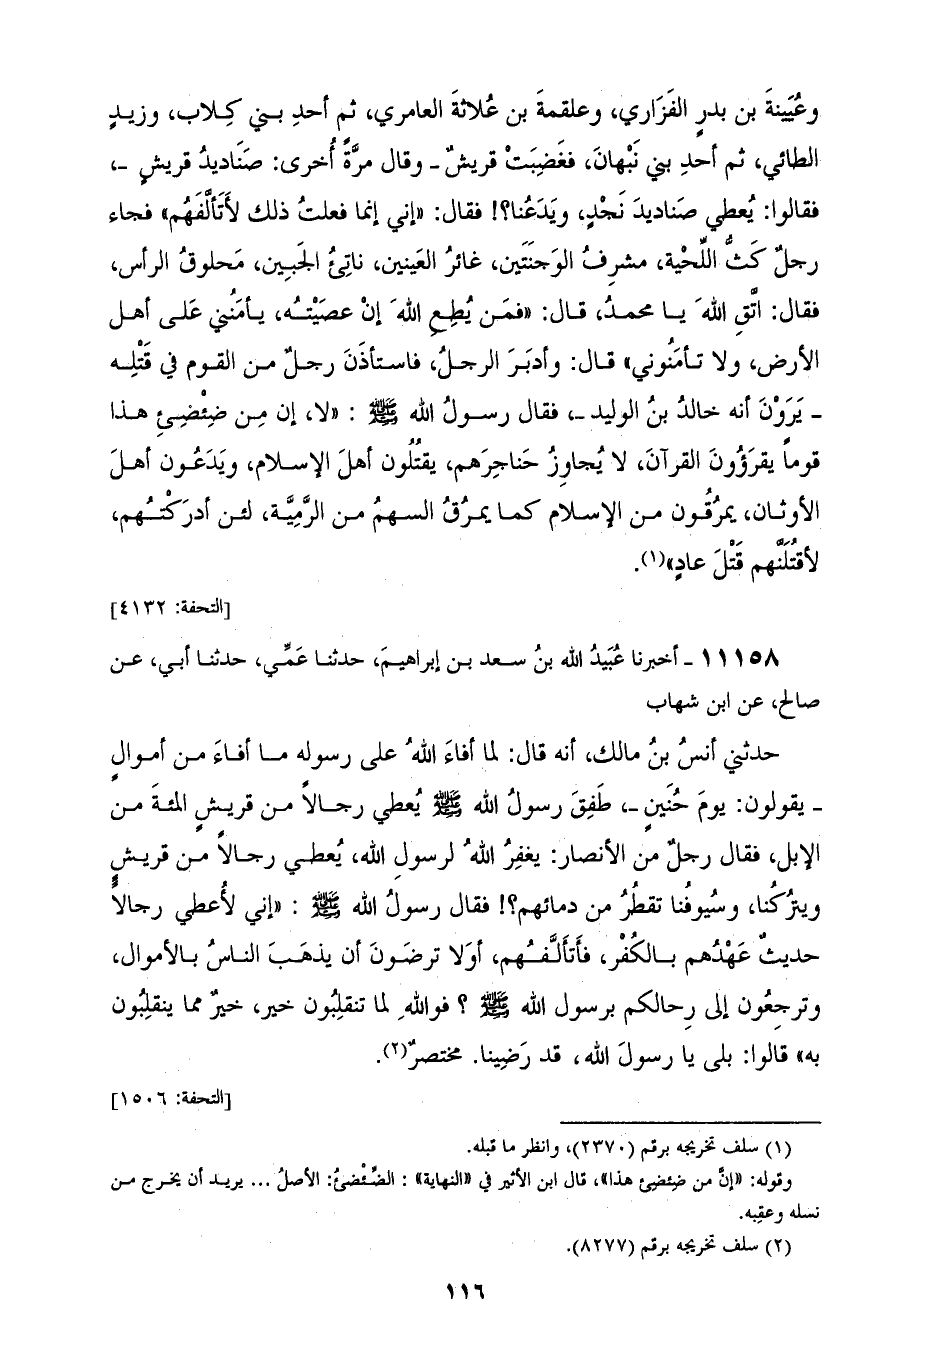 وعُيَينةَ بن بدرٍ الفَزَاري، وعلقمةَ بن عُلاثةَ العامري، ثم أحدِ بني كِلاب، وزيدٍ
الطائي، ثم أحدِ بني نَبْهانَ، فغَضِبَتْ قريشٌ - وقال مرَّةً أُخرى: صَنَاديدُ قريشٍ -،
فقالوا: يُعطي صَناديدَ نَجْدٍ، ويَدَعُنا؟! فقال: «إني إنما فعلتُ ذلك لأَتَألَّفَهُم» فجاء
رجلٌ كَثُّ اللِّحْية، مشرِفُ الوَجنَتَين، غائرُ العَينين، ناتِئُ الجَبِين، مَحلوقُ الرأس،
فقال: اتَّقِ اللهَ يا محمدُ، قال: «فمَن يُطِعِ اللهَ إنْ عصَيْتُه، يأمَنُني عَلى أهل
الأرض، ولا تأمَنُوني» قال: وأدبَرَ الرجلُ، فاستأذَنَ رجلٌ من القوم في قَتْلِه
- يَرَوْنَ أنه خالدُ بنُ الوليد -، فقال رسولُ الله ﷺ : «لا، إن مِن ضِئْضِئِ هذا
قوماً يقرَؤُونَ القرآنَ، لا يُجاوِزُ حَناجِرَهم، يقتُلُون أهلَ الإسلام، ويَدَعُون أهلَ
الأوثان، يمرُقُون من الإسلام كما يمرُقُ السهمُ من الرَّمِيَّة، لئن أدرَكْتُهم،
لأقتُلَنَّهم قَتْلَ عادٍ»(١).
[التحفة: ٤١٣٢]
١١١٥٨ - أخبرنا عُبَيدُ الله بنُ سعد بن إبراهيمَ، حدثنا عَمِّي، حدثنا أبي، عن
صالح، عن ابن شهاب
حدثني أنسُ بنُ مالك، أنه قال: لما أفاءَ اللهُ على رسوله ما أفاءَ من أموالٍ
- يقولون: يومَ حُنَينٍ -، طَفِقَ رسولُ الله ﷺ يُعطي رجالاً من قريشٍ المئةَ من
الإبل، فقال رجلٌ من الأنصار: يغفِرُ اللهُ لرسولِ الله، يُعطي رجالاً من قريشٍ
ويترُكُنا، وسُيوفُنا تقطُرُ من دمائهم؟! فقال رسولُ الله ﷺ : «إني لأُعطي رجالاً
حديثٌ عَهْدُهم بالكُفْر، فأتألَّفُهم، أوَلا ترضَونَ أن يذهَبَ الناسُ بالأموال،
وترجِعُون إلى رِحالكم برسول الله ﷺ ؟ فواللهِ لما تنقلِبُون خير، خيرٌ مما ينقلِبُون
به» قالوا: بلى يا رسولَ الله، قد رَضِينا. مختصرٌ(٢).
[التحفة: ١٥٠٦]
(١) سلف تخريجه برقم (٢٣٧٠)، وانظر ما قبله.
وقوله: «إنَّ من ضِئضِئ هذا»، قال ابن الأثير في «النهاية» : الضِّئْضئُ: الأصلُ ... يريد أن يخرج من
نسله وعقِبه.
(٢) سلف تخريجه برقم (٨٢٧٧).
١١٦